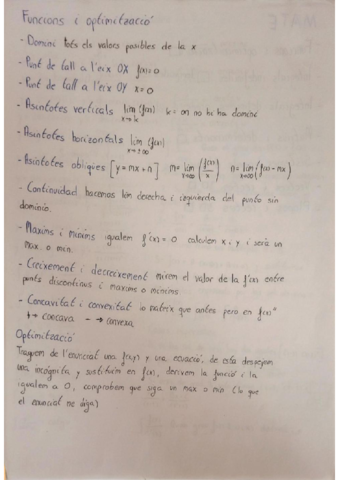 Funcions i optimització
- Domini tots els valors posibles de la x
- Punt de tall a l'eix OX f(x)=0
- Punt de tall a l'eix OY x=0
- Asintotes verticals lim f(x) x→k k = on no hi ha domini
- Asintotes horizontals lim f(x) x→±∞
- Asintotes obliques [y=mx+n] m=lim x→∞ (f(x)/x) n=lim x→∞ (f(x)-mx)
- Continuidad hacemos lim derecha i izquierda del punto sin
dominio.
- Maxims i minims igualem f'(x)=0 calculem x i y i serà un
max o min.
- Creixement i decreixement mirem el valor de la f'(x) entre
punts discontinus i maxims o minims
- Concavitat i convexitat lo matrix que antes pero en f(x)"
+→ concava - → convexa
Optimització
Traguem de l'enunciat una f(x,y) y una ecuació, de esta despejem
una incógnita y sustituim en f(x), derivem la funció i la
igualem a 0, comprobem que sigui un max o min (lo que
el enunciat me diga)